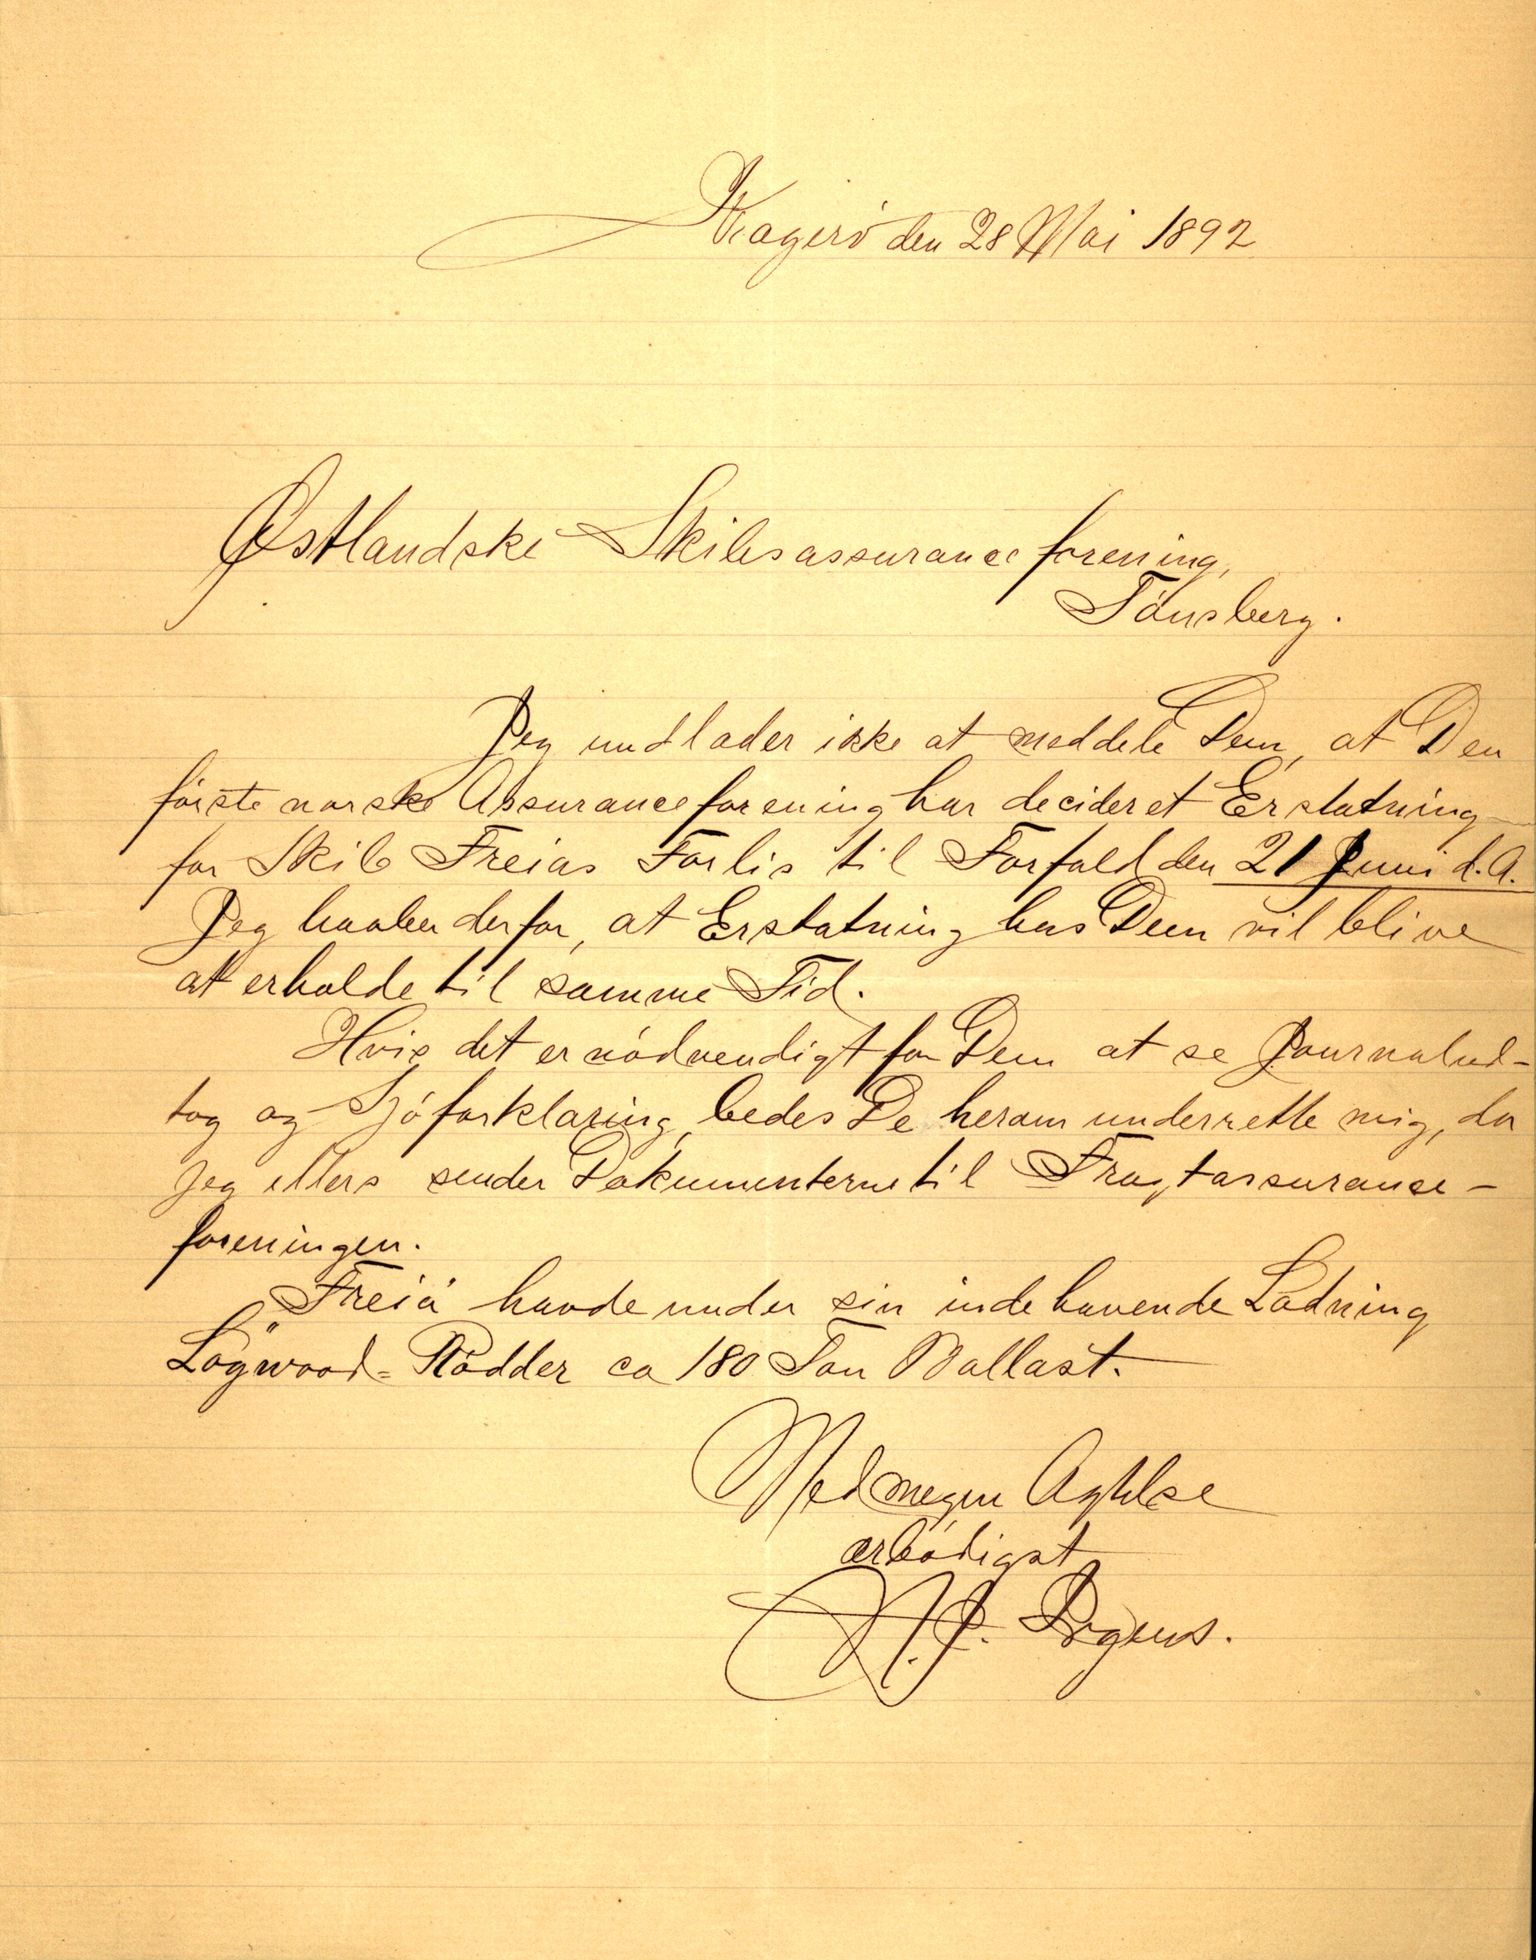 Kragerö den 28 Mai 1892
Østlandske Skibsassuranceforening,
Tönsberg.
Jeg undlader ikke at meddele Dem, at Den
förste norske Assuranceforening har decideret Erstatning
for Skib Freias Forlis til Forfald den 21 Juni d. A.
Jeg haaber derfor, at Erstatning hos Dem vil blive
at erholde til samme Tid.
Hvis det er nödvendigt for Dem at se Journalud-
tog og Sjöforklaring, bedes De herom underrette mig, da
jeg ellers sender Dokumenterne til Fragtassurance-
foreningen.
Freia havde under sin indehavende Ladning
Logwood-Rödder ca 180 Ton Ballast.
Med megen Agtelse
ærbödigst